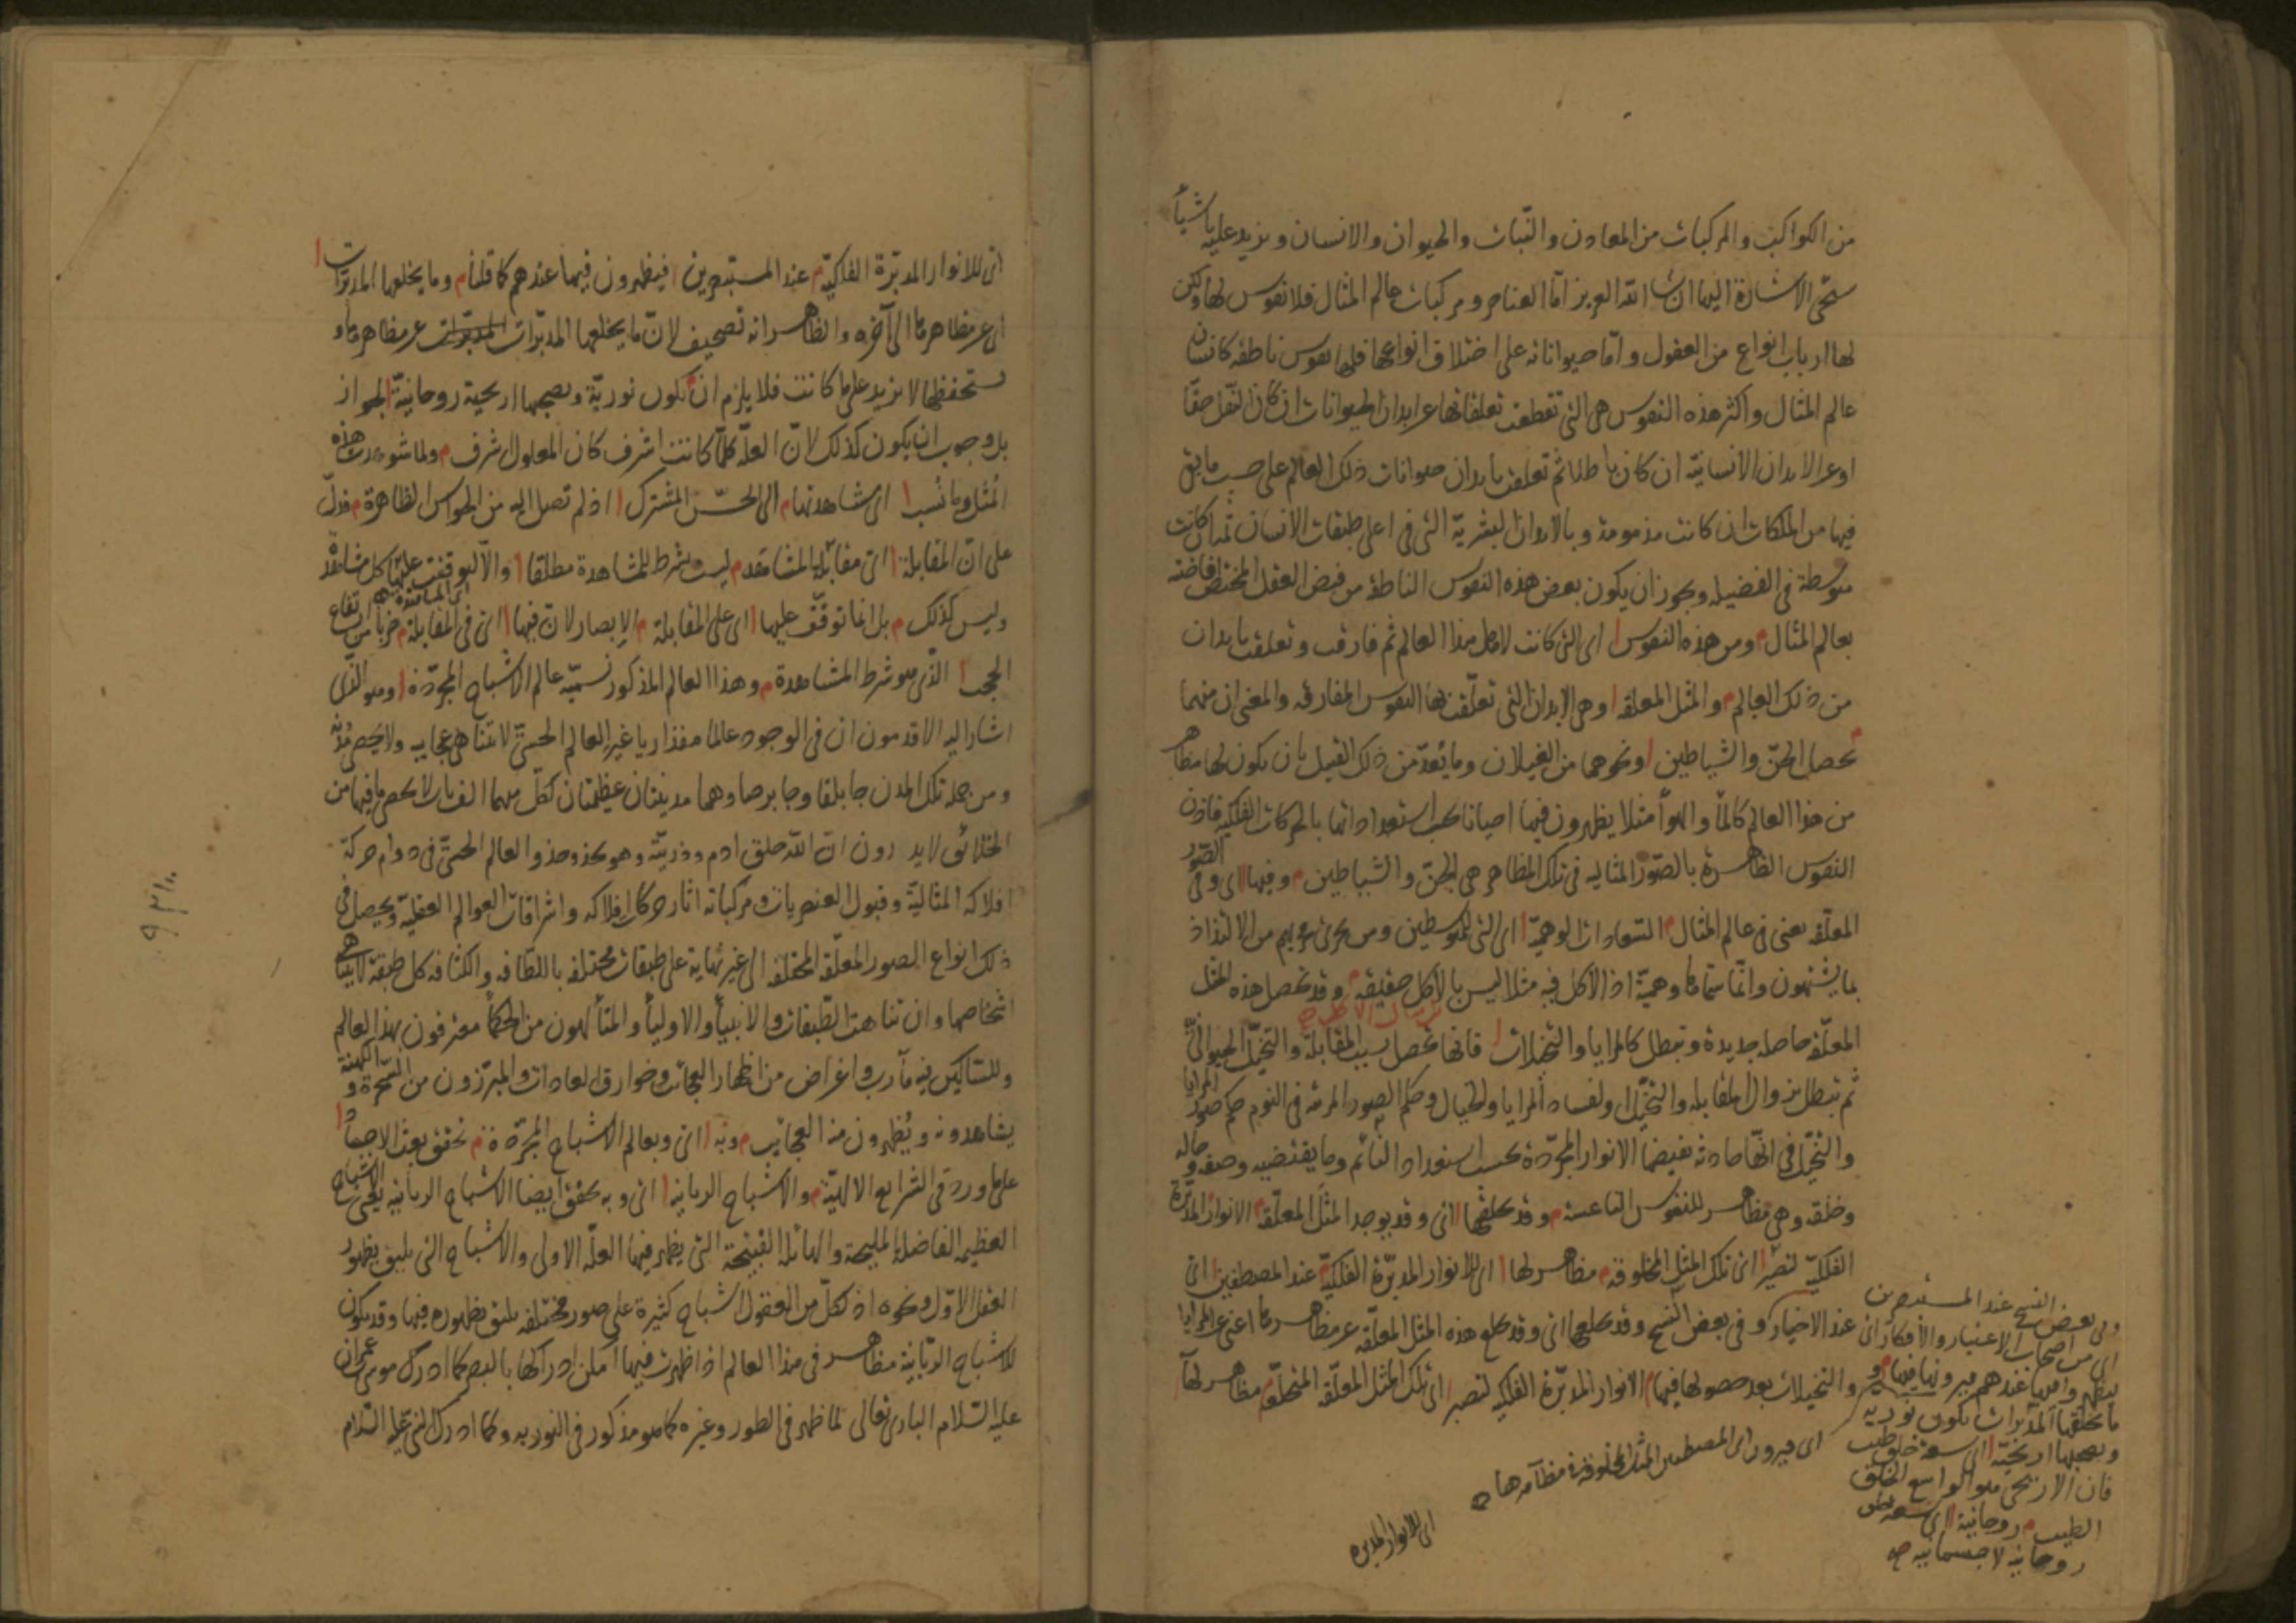 من الكواكب والمركبات من المعادن والنبات والحيوان والانسان ونزيد عليها شيأ
ستجئ الاشارة اليها ان شا الله العزيز اما العناصر ومركبات عالم المثال فلا نفوس لها ولكن
لها ارباب انواع من العقول واما حيواناته على اختلاف انواعها فلها نفوس ناطقه كانسان
عالم المثال واكثر هذه النفوس هى التى تقطعت تعلقاتها عن ابدان الحيوانات ان كان النقل حقا
او عن الابدان الانسانية ان كان باطلا ثم تعلقت بابدان حيوانات ذلك العالم على حسب ما بقى
فيها من الملكات ان كانت مذمومة وبالابدان البشرية التى فى اعلى طبقات الانسان ثمه ان كانت
متوسطة فى الفضيله ويجوز ان يكون بعض هذه النفوس الناطقة من فيض العقل المختص افاضته
بعالم المثال ومن هذه النفوس اى التى كانت لاهل هذا العالم ثم فارقت وتعلقت بابدان
من ذلك العالم والمثل المعلقه وهى الابدان التى تعلقت بها النفوس المفارقه والمعنى ان منهما
تحصل الجن والشياطين ونحوهما من الغيلان وما يعد من ذلك القبيل بان يكون لها مظاهر
من هذا العالم كالماء والهوأ مثلا يظهرون فيها احيانا بحسب استعداداتها بالحركات الفلكيه فاذن
النفوس الظاهرة بالصور المثاليه فى تلك المظاهر هى الجن والشياطين وفيها اى وفى الصور
المعلقه يعنى فى عالم المثال السعادات الوهمية اى التى للمتوسطين ومن يجرى مجريهم من الالتذاذ
بما يشتهون وانما سماها وهمية اذ الاكل فيه مثلا ليس بالاكل حقيقه وقد تحصل هذه المثل
المعلقه حاصله جديدة وتبطل كالمرايا والتخيلات فانها تحصل بسبب المقابلة والتخيل الحيوانى
ثم تبطل بزوال المقابله والتخيل او لفساد المرايا والخيال وحكم الصور المرئية فى النوم حكم صور المرايا
والتخيل فى انها حادثه تفيضها الانوار المجردة بحسب استعداد النائم وما يقتضيه وصفه وحاله
وخلقه وهى مظاهر للنفوس الناعسة وقد يخلقها اى وقد يوجد المثل المعلقه الانوار المدبرة
الفلكية لتصير اى تلك المثل المخلوقه مظاهر لها اى للانوار المدبرة الفلكية عند المصطفين اى
عند الاخيار وفى بعض النسخ وقد يخلعها اى وقد يخلع هذه المثل المعلقه عن مظاهرها اعنى عن المرايا
والتخيلات بعد حصولها فيها الانوار المدبرة الفلكيه لتصير اى تلك المثل المعلقه المتخلعه مظاهر لها
وفى بعض النسخ عند المستبصرين
اى من اصحاب الاعتبار والافكار اى
ليظهروا فيها عندهم فيرونها فيها و
ما يخلقها المدبرات يكون نورية
ويصحبها اريحية اى سعة خلق طيب
فان الاريحى هو الواسع الخلق
الطيب روحانية اى سعة
روحانيه لا جسمانيه
اى فيرون اى المصطفين المثل المخلوقة مظاهرها
اى للانوار المدبره
اى للانوار المدبرة الفلكية عند المستبصرين فيظهرون فيها عندهم كما قلنا وما يخلعها المدبرات
اى عن مظاهرها الى آخره والظاهر انه تصحيف لان ما يخلعها المدبرات عن مظاهرها و
تستحفظها لا يزيد على ما كانت فلا يلزم ان يكون نورية ويصحبها اريحية روحانية لجواز
بل وجوب ان يكون كذلك لان العلة كلما كانت اشرف كان المعلول اشرف ولما شوهدت هذه
المثل وما نسب اى مشاهدتها الى الحس المشترك اذ لم تصل اليه من الحواس الظاهرة فدل
على ان المقابلة اى مقابلة المشاهد ليست بشرط للمشاهدة مطلقا والا لتوقفت عليها كل مشاهدة
وليس كذلك بل انما توقف عليها اى على المقابلة الابصار لان فيها اى فى المقابلة ضربا من ارتفاع
الحجب الذى هو شرط المشاهدة وهذا العالم المذكور نسميه عالم الاشباح المجردة وهو الذى
اشار اليه الاقدمون ان فى الوجود عالما مقداريا غير العالم الحسى لا تتناهى عجايبه ولا يحصى مدنه
ومن جمله تلك المدن جابلقا وجابرصا وهما مدينتان عظيمتان لكل منهما الف باب لا يحصى ما فيها من
الخلائق لا يدرون ان الله خلق ادم وذريته وهو يحذو حذو العالم الحسى فى دوام حركة
افلاكه المثالية وقبول العنصريات ومركباته اثار حركات افلاكه واشراقات العوالم العقلية ويحصل فى
ذلك انواع الصور المعلقه المختلفه الى غير نهاية على طبقات مختلفه باللطافه والكثافه كل طبقة لا يتناهى
اشخاصها وان تناهت الطبقات والانبيأ والاوليأ والمتألهون من الحكمأ معترفون بهذا العالم
وللسالكين فيه مآرب واغراض من اظهار العجائب وخوارق العادات والمبرزون من السحرة والكهنة
يشاهدونه ويظهرون منه العجائب وبه اى وبعالم الاشباح المجردة تحقق بعث الاجساد
على ما ورد فى الشرايع الالهية والاشباح الربانيه اى وبه تحقق ايضا الاشباح الربانيه يعنى الاشباح
العظيمة الفاضلة المليحة والهائلة القبيحة التى يظهر فيها العلة الاولى والاشباح التى يليق بظهور
العقل الاول ونحوه اذ لكل من العقول اشباح كثيرة على صور مختلفه يليق بظهوره فيها وقد يكون
للاشباح الربانية مظاهر فى هذا العالم اذا ظهرت فيها امكن ادراكها بالبصر كما ادرك موسى بن عمران
عليه السلام البارى تعالى لما ظهر فى الطور وغيره كما هو مذكور فى التوريه وكما ادرك النبى عليه السلام